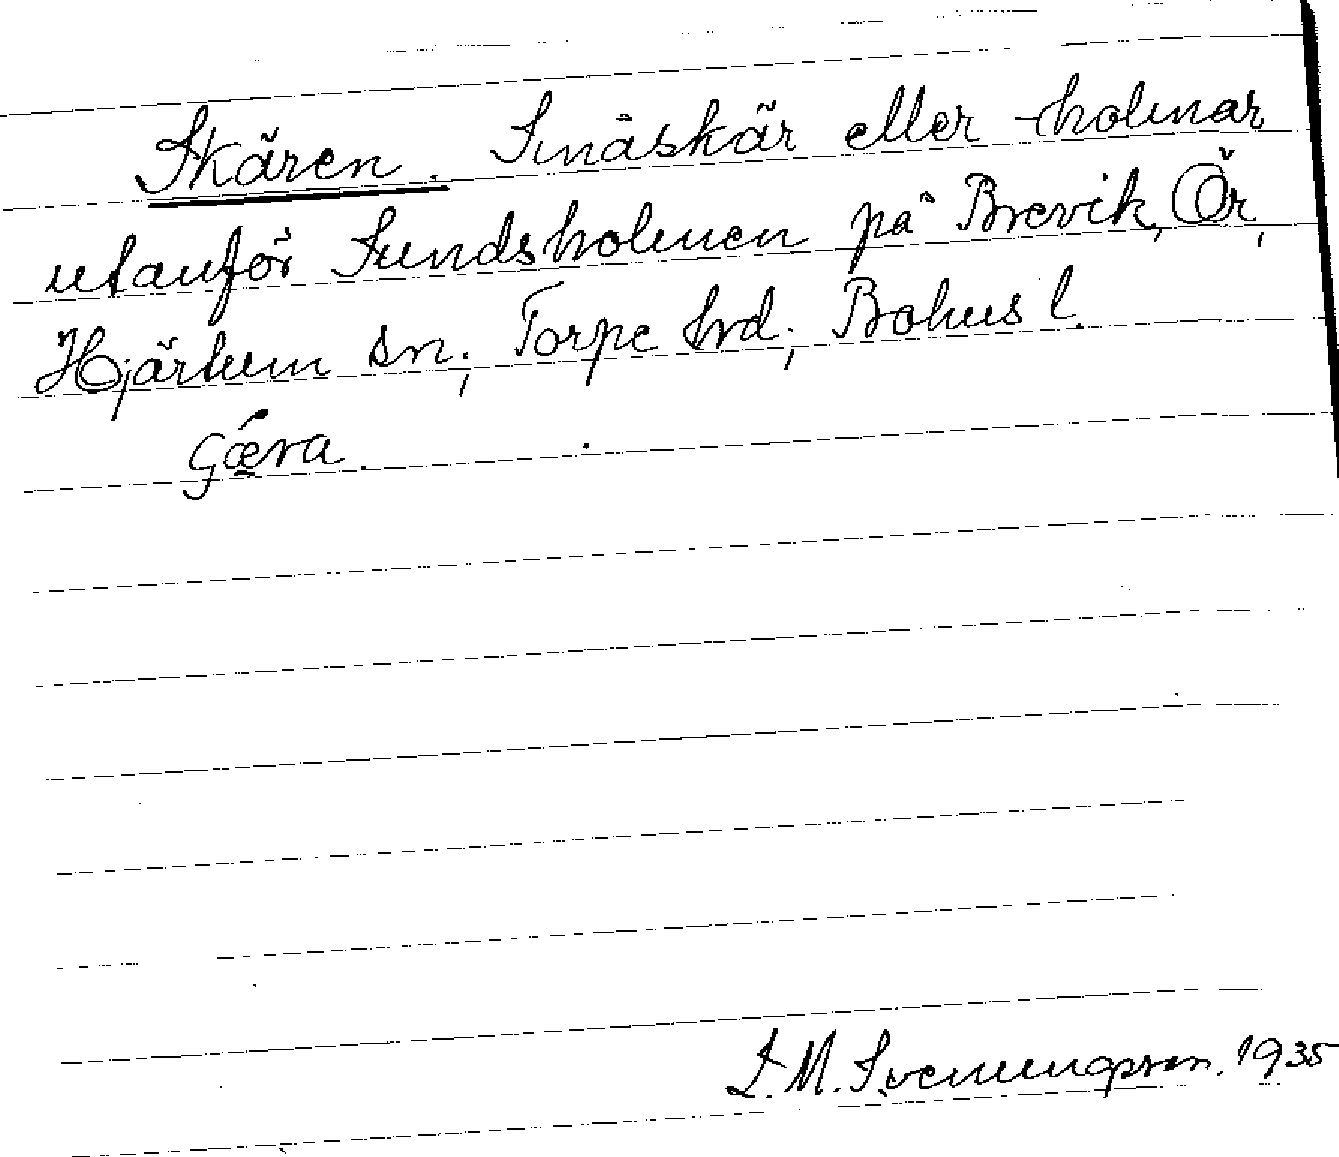 Skären. Småskär eller -holmar
utanför Sundsholmen på Brevik, Ör,
Hjärtum sn; Torpe hrd; Bohus l.
L. M. Svenungsson. 1935